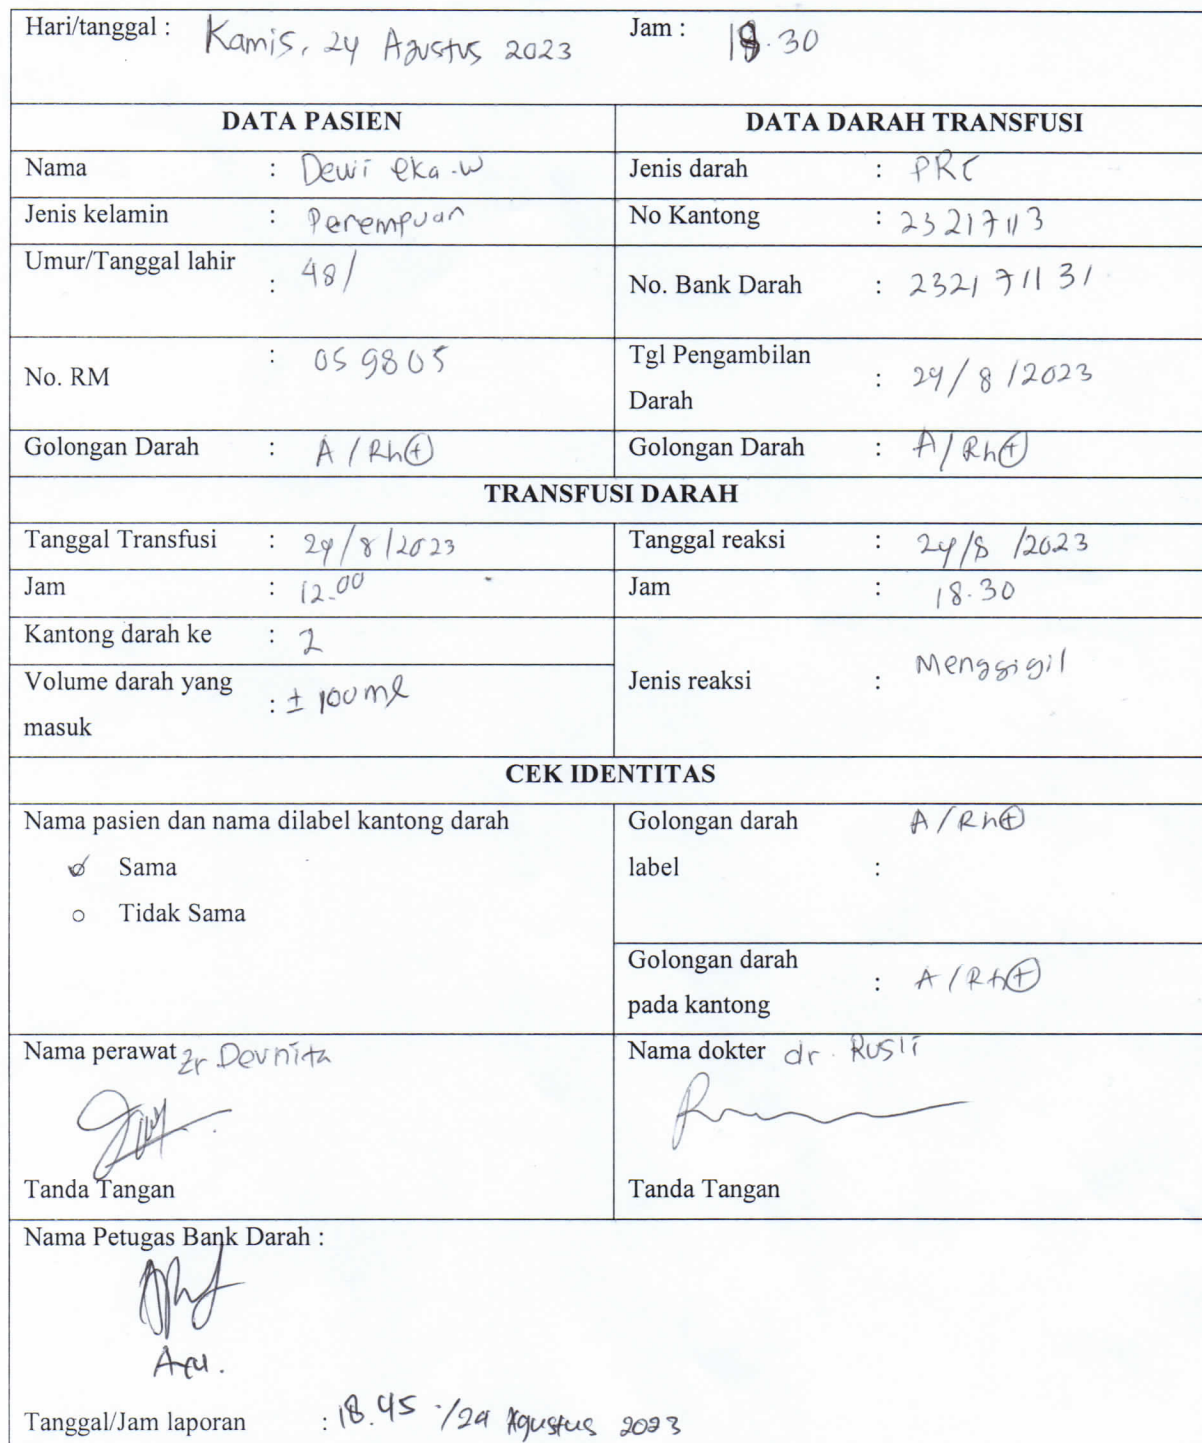 Hari/tanggal : Kamis, 24 Agustus 2023 Jam : 18.30
DATA PASIEN DATA DARAH TRANSFUSI
Nama : Dewi eka.w Jenis darah : PRC
Jenis kelamin : Perempuan No Kantong : 23217113
Umur/Tanggal lahir : 48/ No. Bank Darah : 232171131
No. RM : 059805 Tgl Pengambilan Darah : 24/8/2023
Golongan Darah : A/Rh(+) Golongan Darah : A/Rh(+)
TRANSFUSI DARAH
Tanggal Transfusi : 24/8/2023 Tanggal reaksi : 24/8/2023
Jam : 12.00 Jam : 18.30
Kantong darah ke : 2
Volume darah yang masuk : ± 100 ml Jenis reaksi : Menggigil
CEK IDENTITAS
Nama pasien dan nama dilabel kantong darah Golongan darah label : A/Rh(+)
Sama
Tidak Sama
Golongan darah pada kantong : A/Rh(+)
Nama perawat Zr Devnita Nama dokter dr. Rusli
Tanda Tangan Tanda Tangan
Nama Petugas Bank Darah :
Tanggal/Jam laporan : 18.45 /24 Agustus 2023